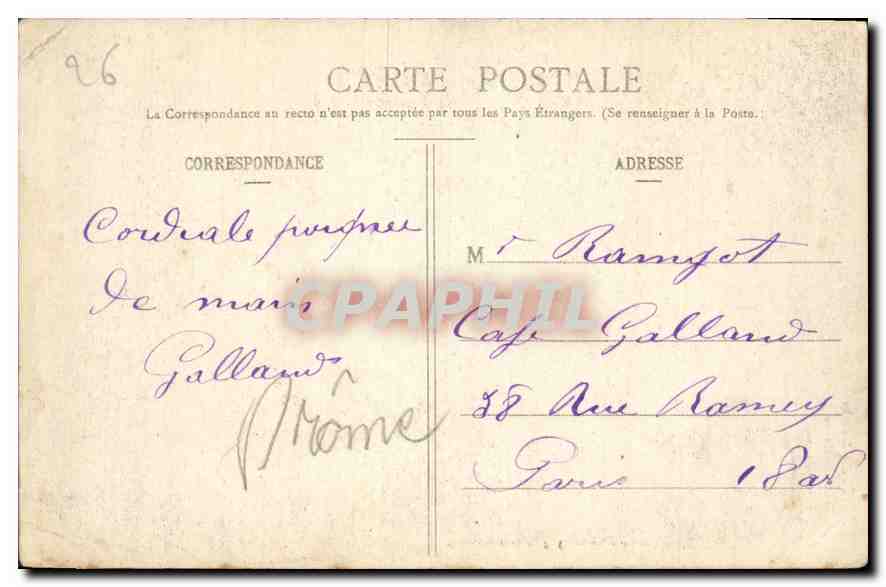 26
CARTE POSTALE
La Correspondance au recto n'est pas acceptée par tous les Pays Étrangers. (Se renseigner à la Poste.)
CORRESPONDANCE
Cordiale poignee
de main
Galland
Drôme
ADRESSE
Mr Raingot
Cafe Galland
58 Rue Ramey
Paris 18ar
CPAPHIL